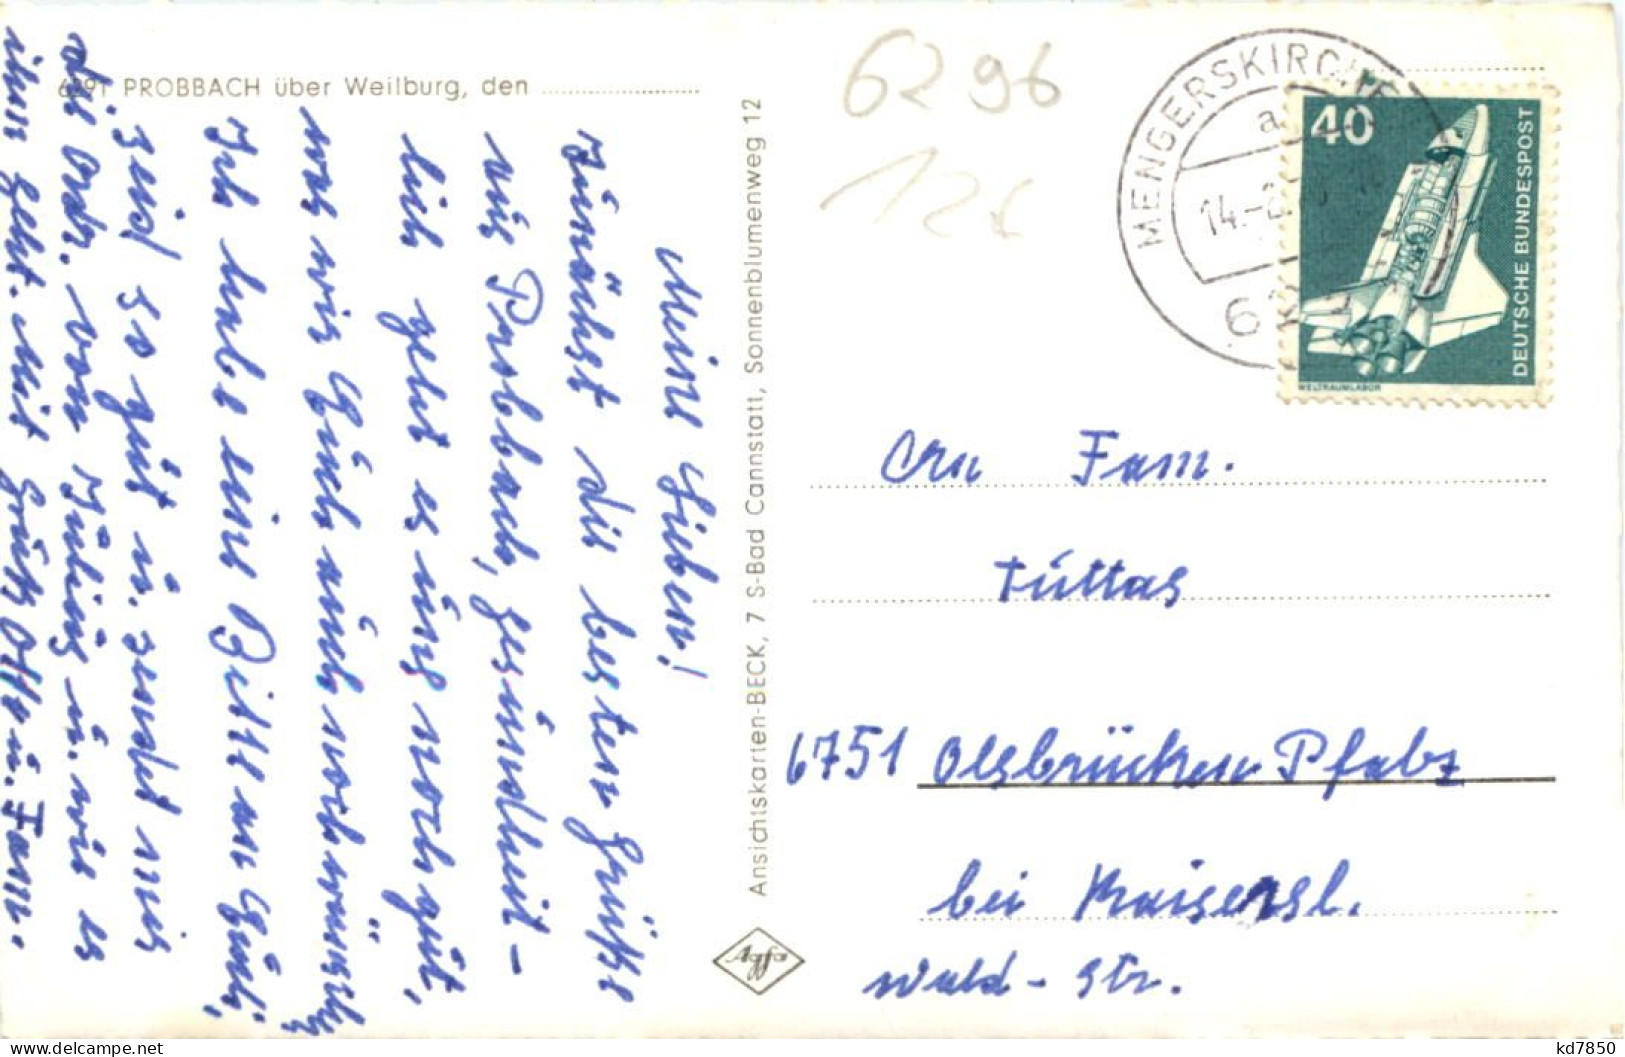 6291 PROBBACH über Weilburg, den
Meine Lieben!
Zunächst die besten Grüße
aus Probbach, gesundheit-
lich geht es uns noch gut,
was wir Euch auch noch wünschen
Ich habe eine Bitte an Euch,
seid so gut u. sendet mir
die Adr. von Julius u. wie es
ihm geht. Mit Gruß Otto u. Fam.
Ansichtskarten-BECK, 7 S-Bad Cannstatt, Sonnenblumenweg 12
Agfa
6296
126
MENGERSKIRCHEN
a
14.-2
62
40
DEUTSCHE BUNDESPOST
WELTRAUMLABOR
An Fam.
Tuttas
6751 Olsbrücken Pfalz
bei Kaisersl.
Wald-Str.
kd7850